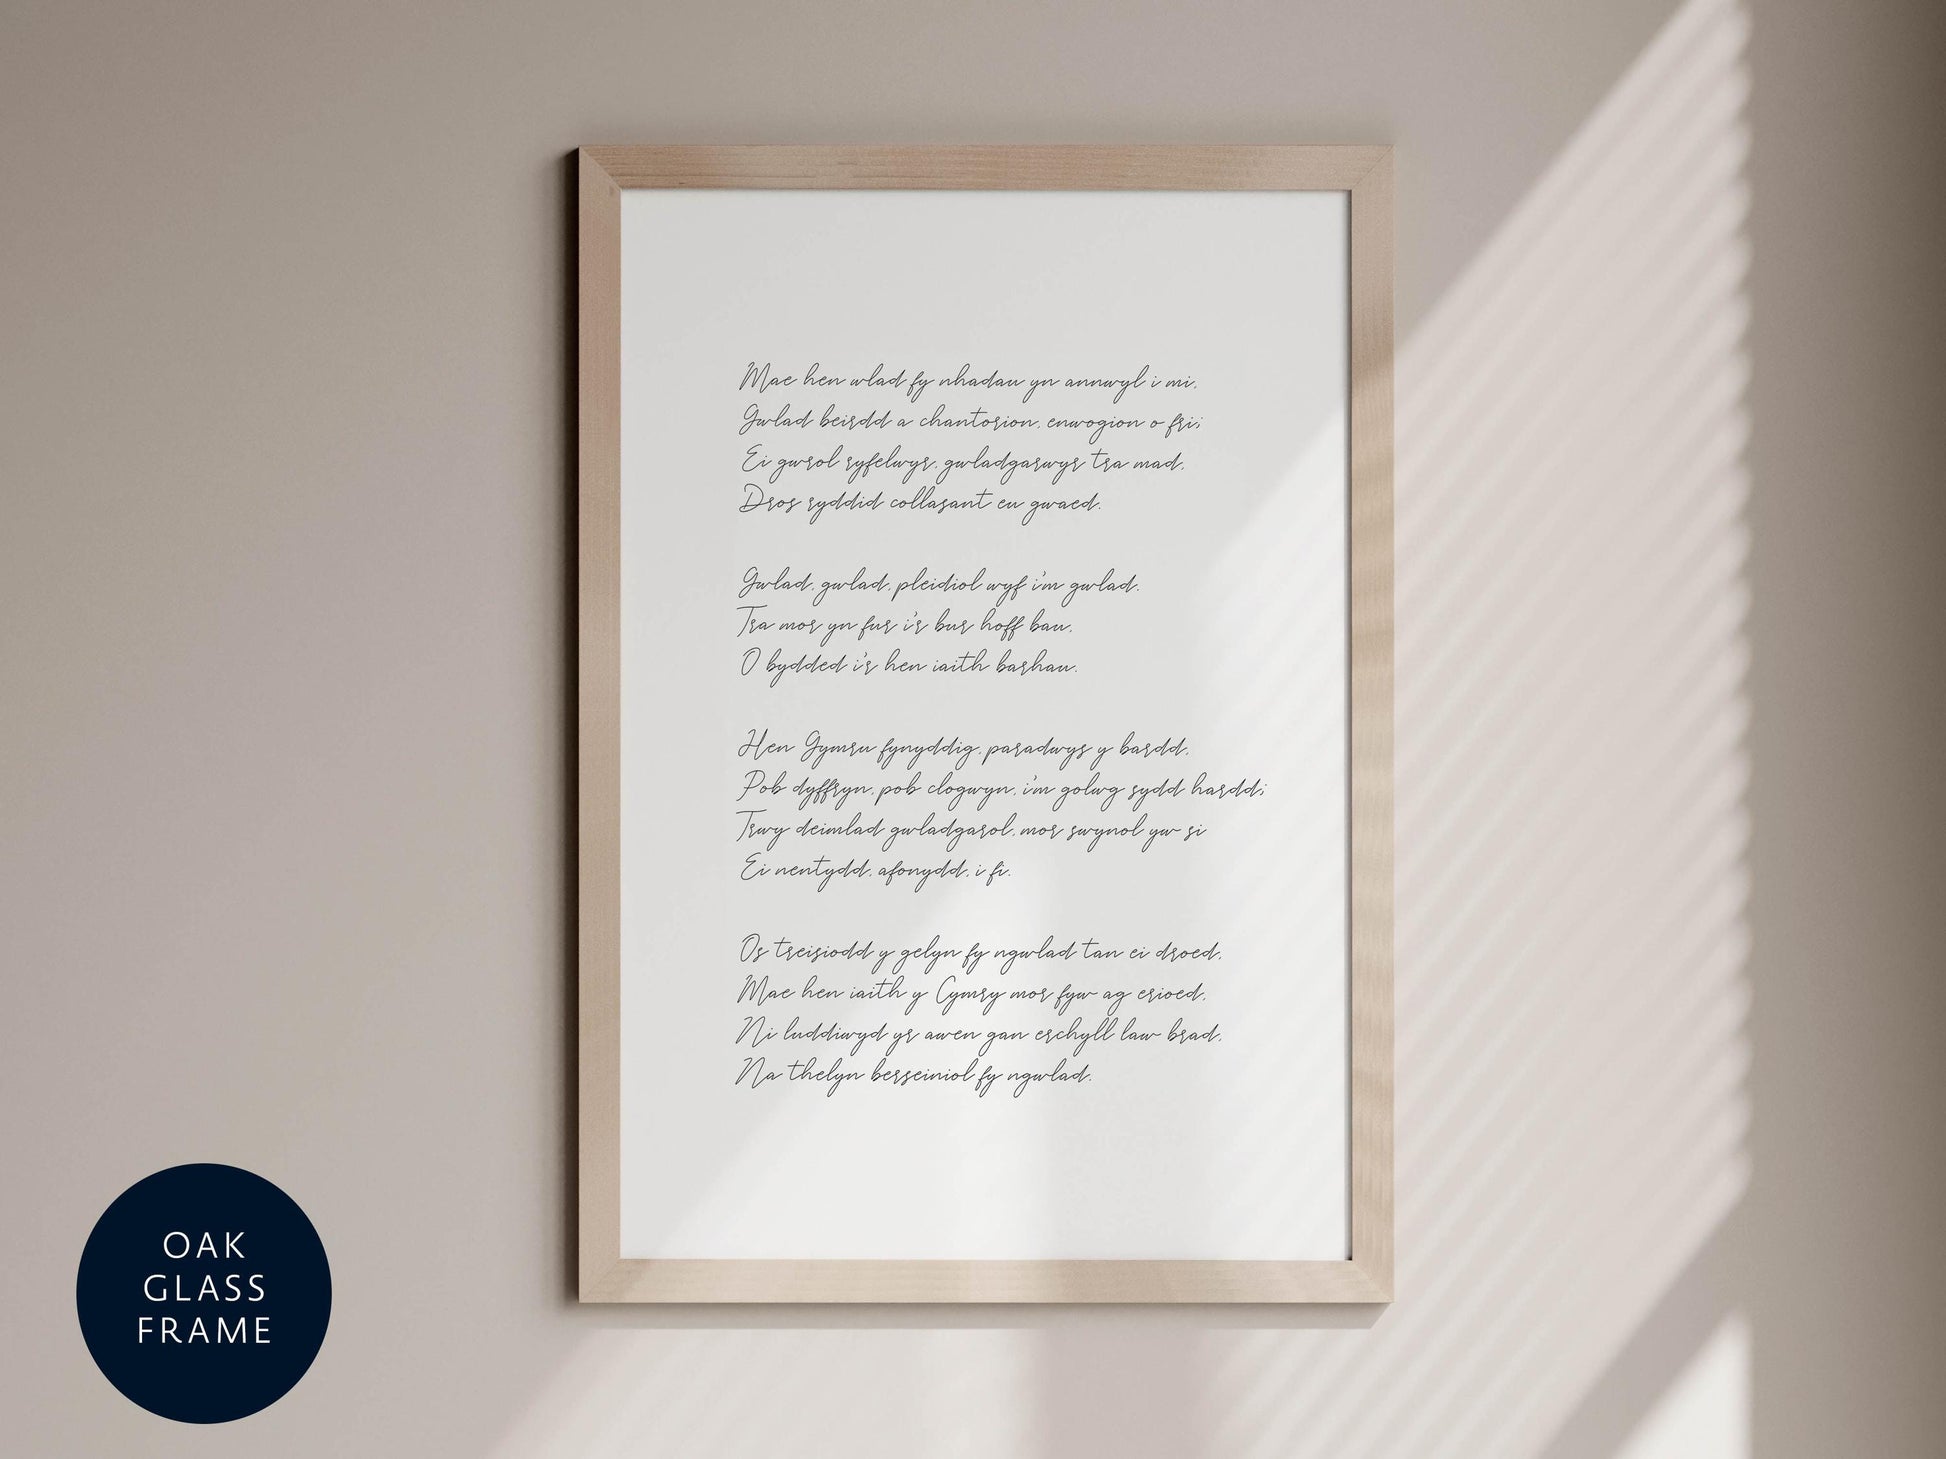 Mae hen wlad fy nhadau yn annwyl i mi,
Gwlad beirdd a chantorion, enwogion o fri;
Ei gwrol ryfelwyr, gwladgarwyr tra mad,
Dros ryddid collasant eu gwaed.
Gwlad, gwlad, pleidiol wyf i'm gwlad.
Tra mor yn fur i'r bur hoff bau,
O bydded i'r hen iaith barhau.
Hen Gymru fynyddig, paradwys y bardd,
Pob dyffryn, pob clogwyn, i'm golwg sydd hardd;
Trwy deimlad gwladgarol, mor swynol yw si
Ei nentydd, afonydd, i fi.
Os treisiodd y gelyn fy ngwlad tan ei droed,
Mae hen iaith y Cymry mor fyw ag erioed,
Ni luddiwyd yr awen gan erchyll law brad,
Na thelyn berseiniol fy ngwlad.
OAK
GLASS
FRAME